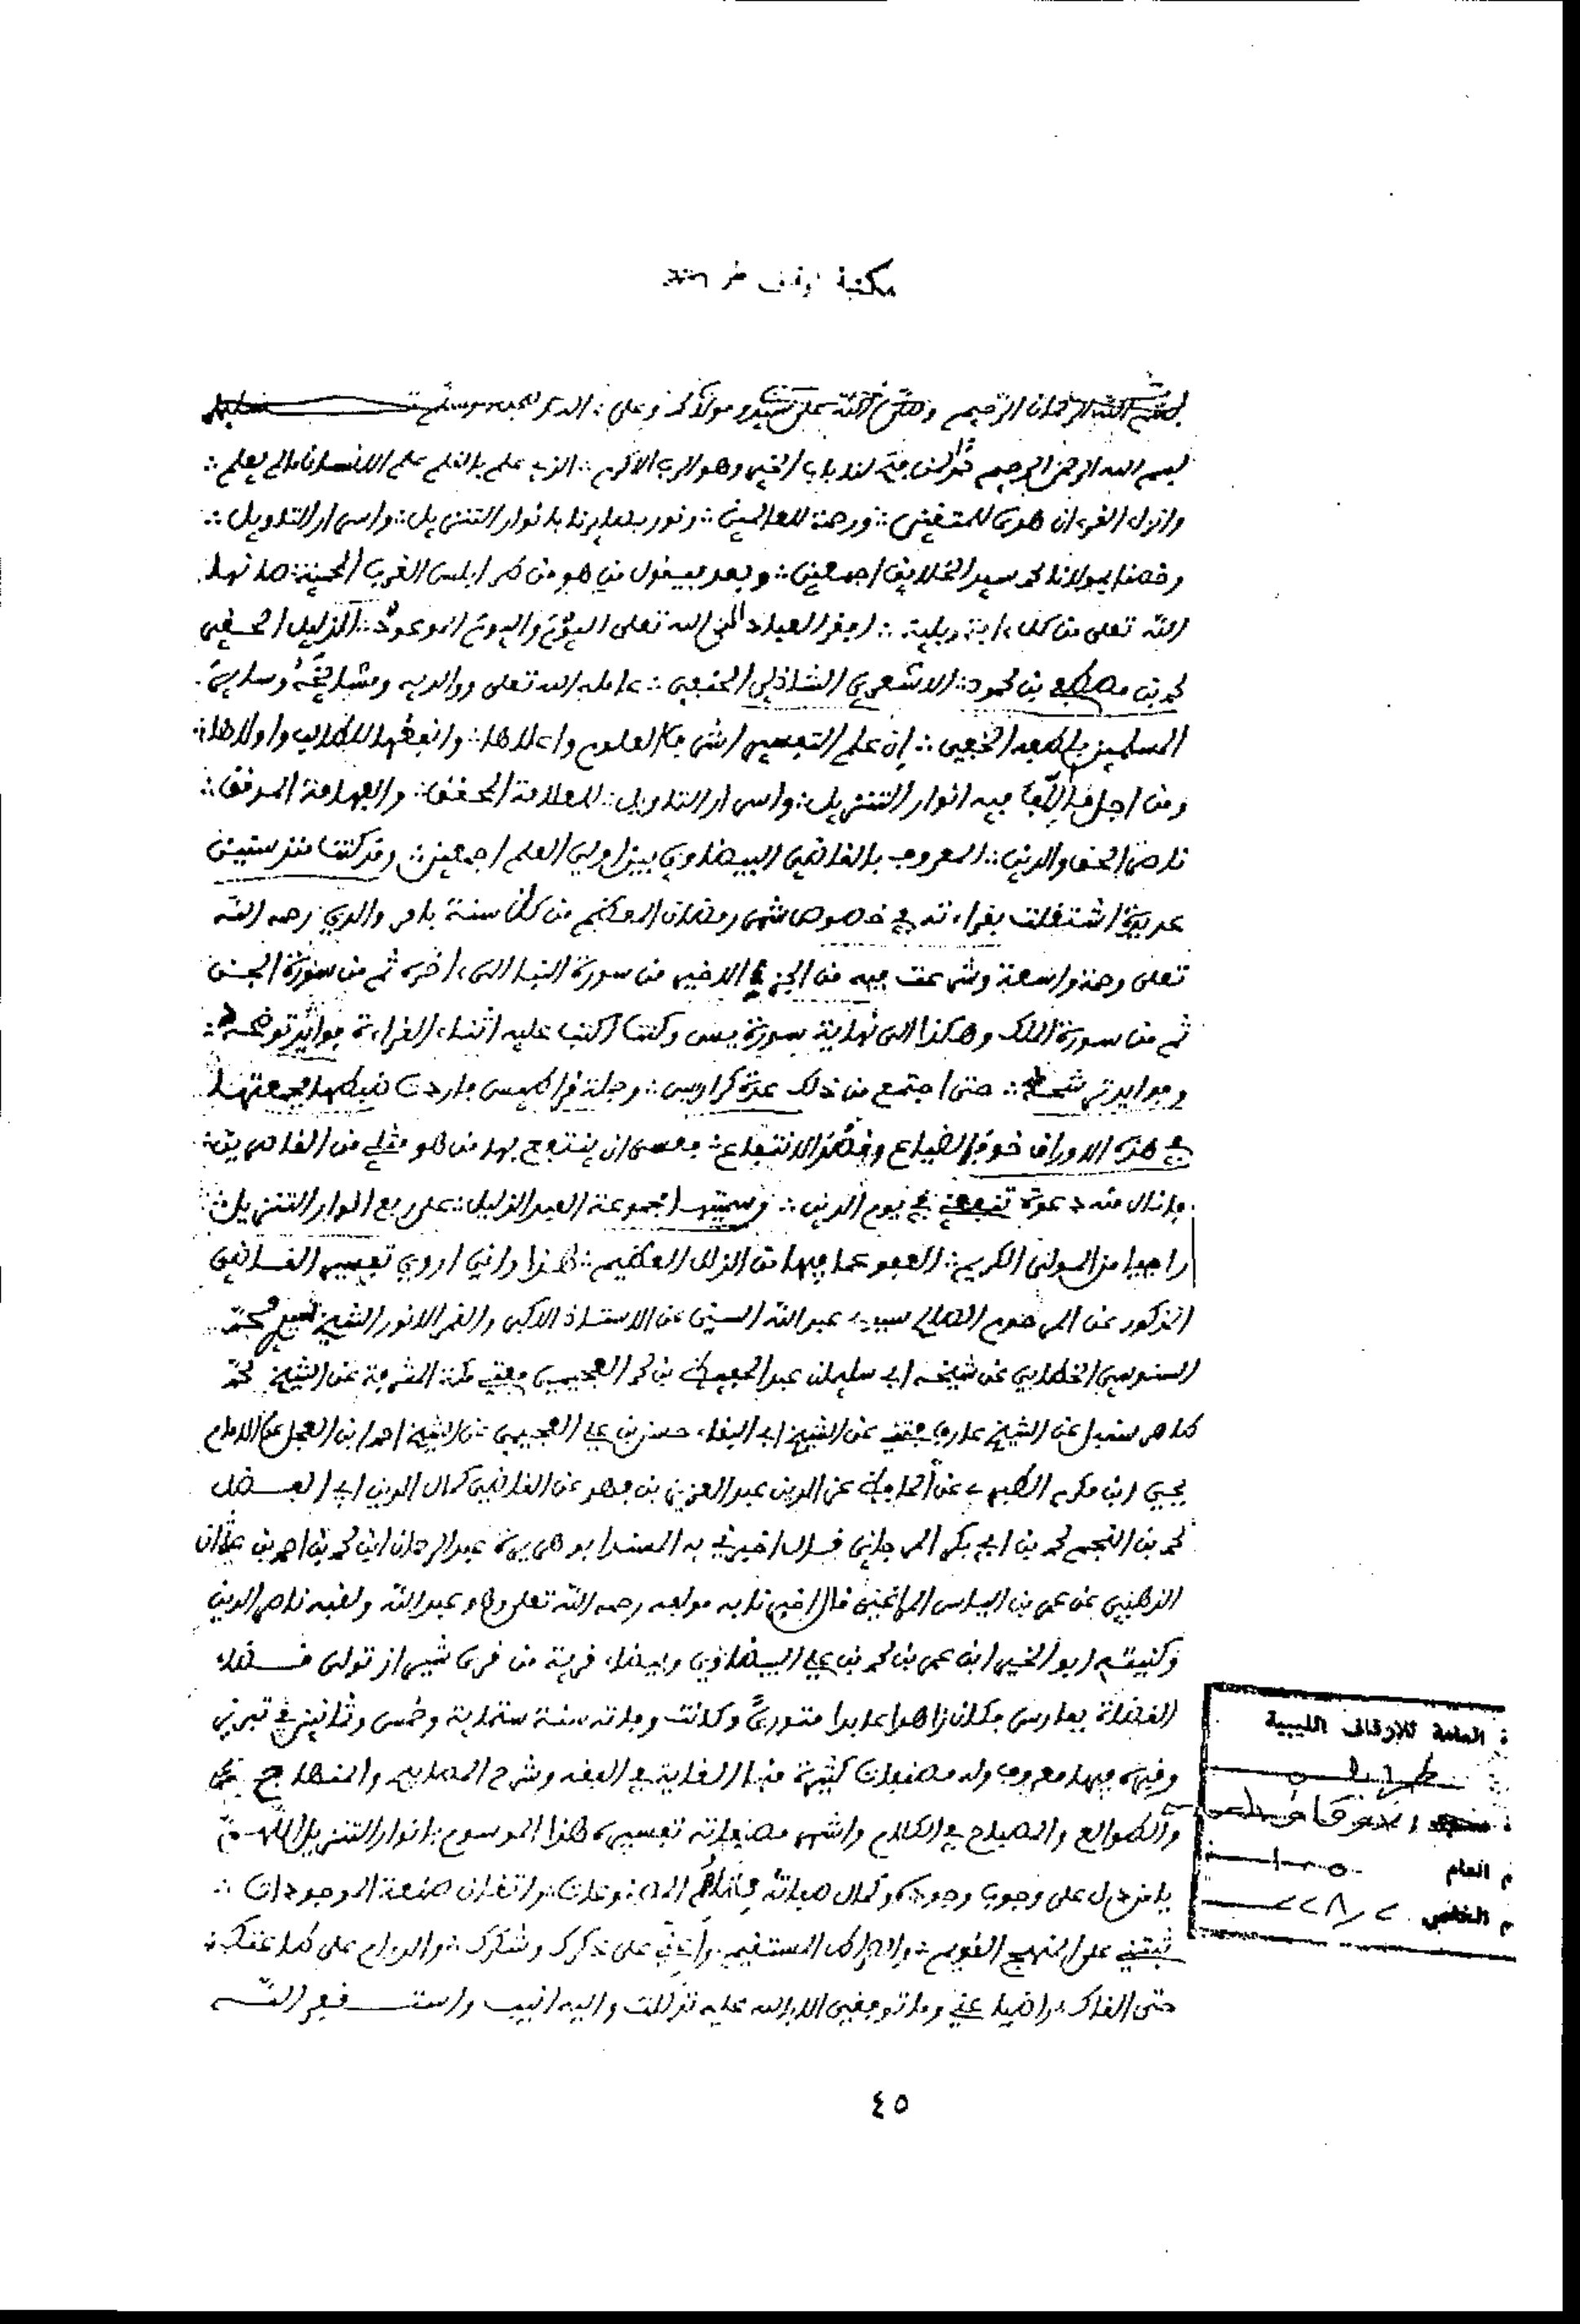 مكتبة أوقاف طر
بسم الله الرحمان الرحيم وصلى الله على سيدنا ومولانا محمد وعلى ءاله وصحبه وسلم تسليما
بسم الله الرحمن الرحيم حمدا لمن فتح لنا باب الخير وهو الرب الأكرم ∴ الذي علم بالقلم علم الانسان ما لم يعلم ∴
وانزل القرءان هدى للمتقين ∴ ورحمة للعالمين ∴ ونور بصايرنا بانوار التنزيل ∴ واسرار التاويل ∴
وخصنا بمولانا محمد سيد الخلايق اجمعين ∴ وبعد فيقول من هو من طرابلس الغرب المحمية ∴ صانها
الله تعلى من كل داية وبلية ∴ افقر العباد الى الله تعلى اليوم واليوم الموعود ∴ الذليل الحقير
محمد بن مصطفى بن محمود ∴ الاشعري الشاذلي الحنفي ∴ عامله الله تعلى ووالديه ومشايخه وساير
المسلمين بلطفه الخفي ∴ إن علم التفسير اشرف العلوم واعلاها ∴ وانفعها للطالب واولاها ∴
ومن اجل ما الف فيه انوار التنزيل ∴ واسرار التاويل ∴ للعلامة المحقق ∴ والفهامة المدقق ∴
ناصر الحق والدين ∴ المعروف بالقاضي البيضاوي بين اولي العلم اجمعين ∴ وقد كنت منذ سنين
عديدة اشتغلت بقراءته في خصوص شهر رمضان المعظم من كل سنة بامر والدي رحمه الله
تعلى رحمة واسعة وشرعت فيه من الجزء الاخير من سورة النبا الى ءاخره ثم من سورة الجن
ثم من سورة الملك وهكذا الى نهاية سورة يس وكنت اكتب عليه اثناء القراءة فوائد توضحه ∴
وفوايد ترشحه ∴ حتى اجتمع من ذلك عدة كراريس ∴ وجملة قراطيس فاردت ضبطها فجمعتها
في هذه الاوراق خوف الضياع وقصد الانتفاع ∴ فعسى ان ينتفع بها من هو مثلي من القاصرين ∴
وانال منه دعوة تنفعني في يوم الدين ∴ وسميتها مجموعة العبد الذليل ∴ على ربع انوار التنزيل ∴
راجيا من المولى الكريم ∴ العفو عما فيها من الزلل العظيم ∴ هذا واني اروي تفسير القاضي
المذكور عن المرحوم الصالح سيدي عبد الله السني عن الاستاذ الاكبر والقمر الانور الشيخ محمد
السنوسي الخطابي عن شيخه ابي سليمان عبد الحفيظ بن محمد العجيمي مفتي مكة المشرفة عن الشيخ محمد
طاهر سنبل عن الشيخ عارف عن الشيخ ابي البقاء حسن بن علي العجيمي عن الشيخ احمد ابن العجل عن الامام
يحيى ابن مكرم الطبري عن الحافظ عز الدين عبد العزيز بن فهد عن القاضي كمال الدين ابي الفضل
محمد بن النجم محمد بن ابي بكر المرجاني قال اخبرني به المسند ابو هريرة عبد الرحمان ابن محمد بن احمد بن عثمان
الذهبي عن عمر بن الياس المراغي قال اخبرنا به مولفه رحمه الله تعلى وهو عبد الله ولقبه ناصر الدين
وكنيته ابو الخير ابن عمر بن محمد بن علي البيضاوي وبيضاء قرية من قرى شيراز تولى قضاء
القضاة بفارس وكان زاهدا عابدا متورعا وكانت وفاته سنة ستماية وخمس وثمانين في تبريز
وقبره فيها معروف وله مصنفات كثيرة منها الغاية في الفقه وشرح المصابيح والمنهاج
والطوالع والمصباح في الكلام واشهر مصنفاته تفسيره هذا الموسوم بانوار التنزيل اللهم
يا من دل على وجوب وجوده وكمال صفاته المصنوعات واتقان صنعة الموجودات ∴
ثبتني على المنهج القويم ∴ والصراط المستقيم ∴ وأعني على ذكرك وشكرك ∴ والدوام على طاعتك ∴
حتى القاك راضيا عني وما توفيقي الا بالله عليه توكلت واليه انيب واستغفر الله
العامة للأوقاف الليبية
طرابلس
الأوقاف
م العام
م الخاص
٤٥